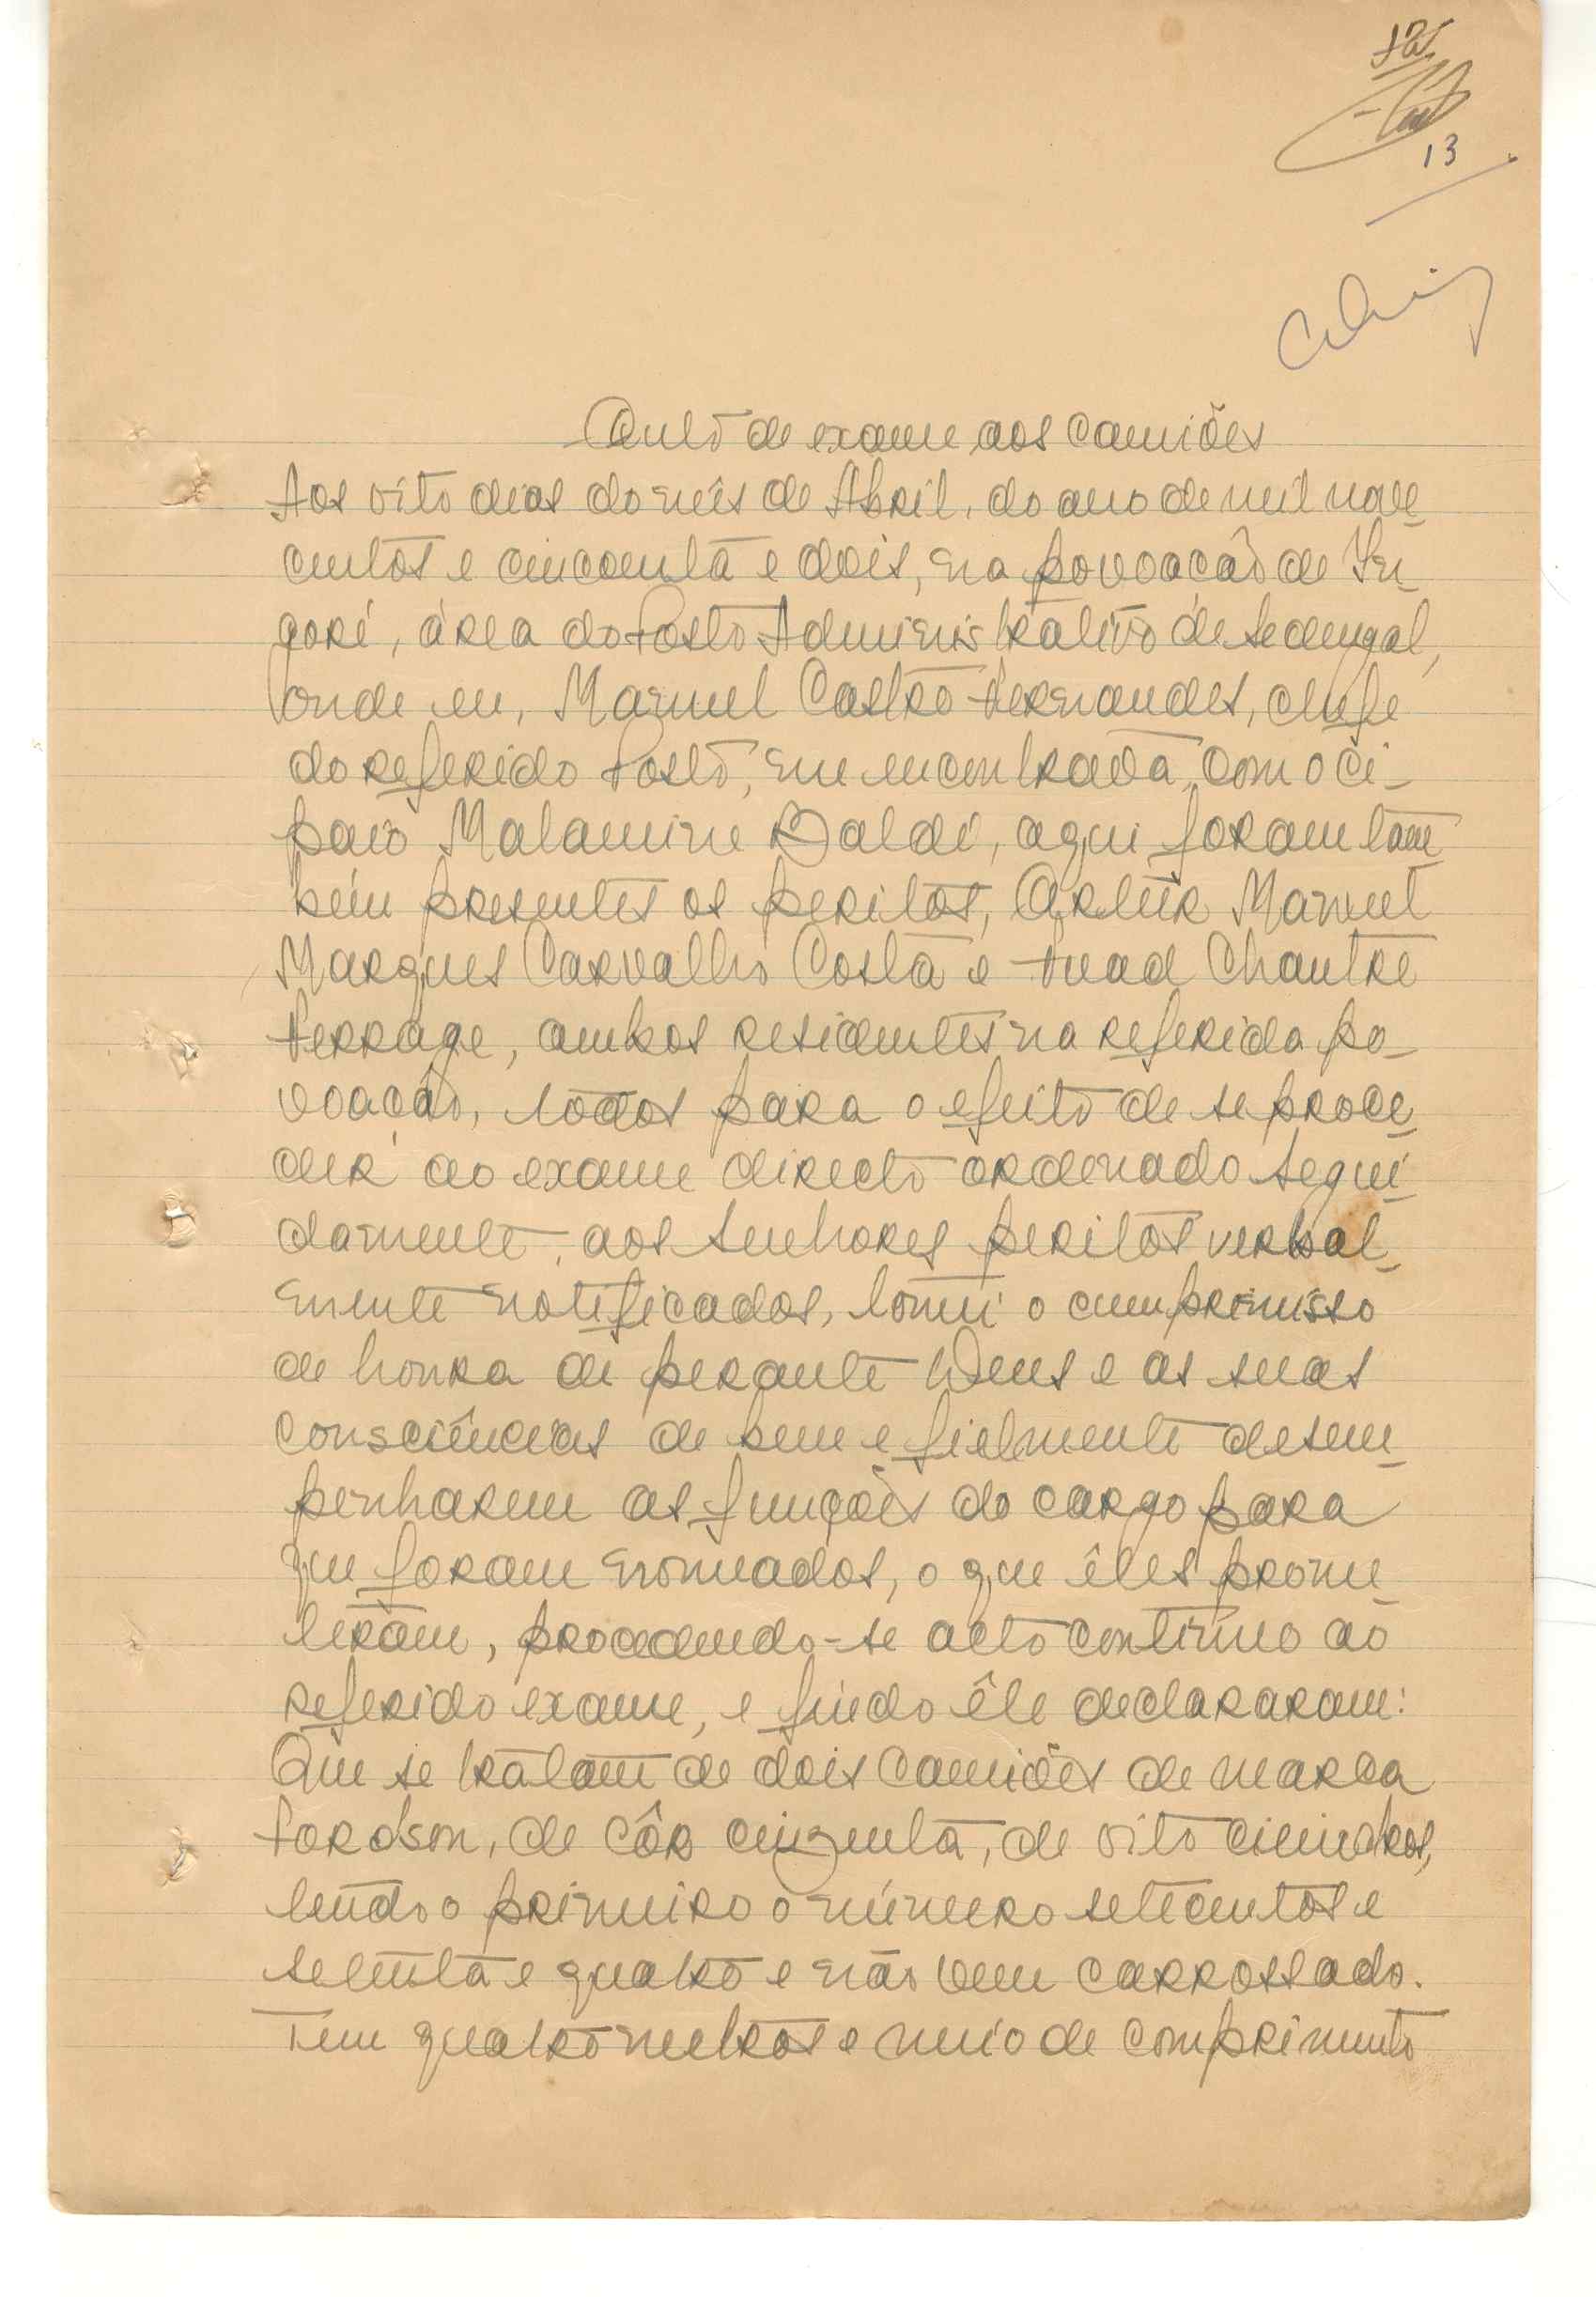 13
Auto de exame aos camiões
Aos oito dias do mês de Abril, do ano de mil nove
centos e cincoenta e dois, na povoação de In-
goré, área do Posto Administrativo de Sedengal,
onde eu, Manuel Castro Fernandes, chefe
do referido Posto, me encontrava, com o ci-
paio Malamine Baldé, aqui foram tam
bém presentes os peritos, Artur Manuel
Marques Carvalho Costa e Fuad Chantre
Ferrage, ambos residentes na referida po-
voação, todos para o efeito de se proce-
der ao exame directo ordenado segui-
damente, aos senhores peritos verbal-
mente notificados, tomei o cumprimisso
de honra de perante Deus e as suas
consciências de bem e fielmente desem-
penharem as funções do cargo para
que foram nomeados, o que êles prome-
teram, procedendo-se acto contínuo ao
referido exame, e findo êle declararam:
Que se tratam de dois camiões de marca
Fordson, de côr cinzenta, de oito cilindros,
tendo o primeiro o número setecentos e
setenta e quatro e não vem carrossado.
Tem quatro metros e meio de comprimento